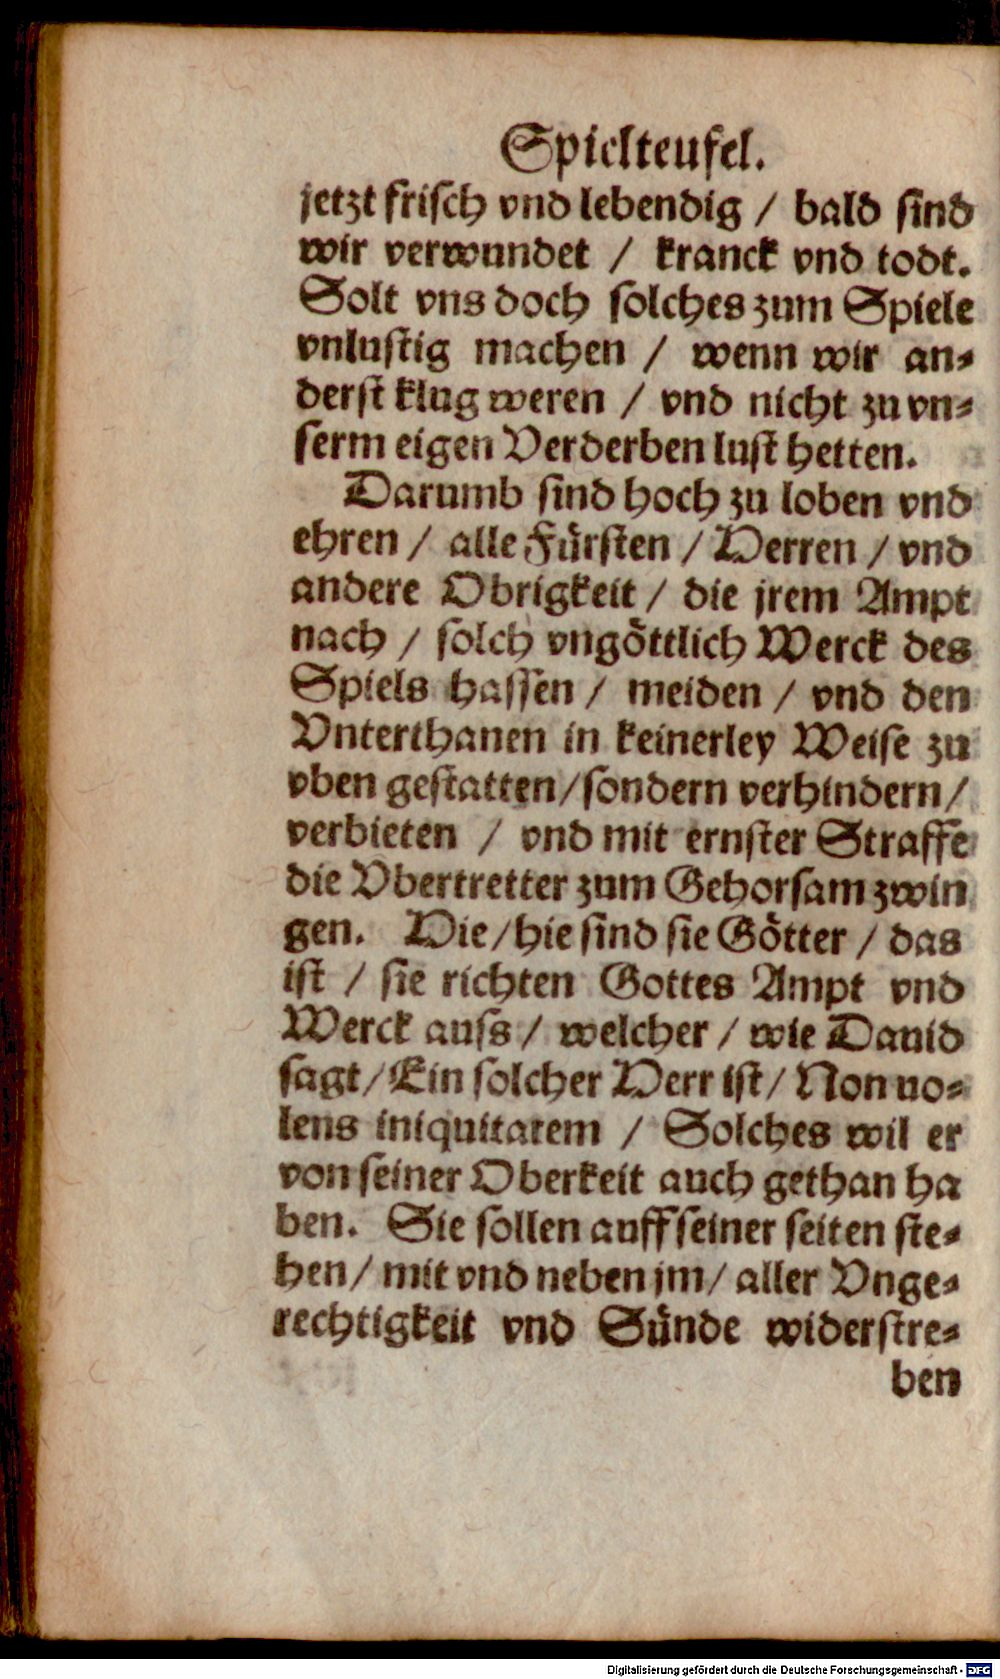 Spielteufel.
jetzt frisch vnd lebendig / bald sind
wir verwundet / kranck vnd todt.
Solt vns doch solches zum Spiele
vnlustig machen / wenn wir an-
derst klug weren / vnd nicht zu vn-
serm eigen Verderben lust hetten.
Darumb sind hoch zu loben vnd
ehren / alle Fürsten / Herren / vnd
andere Obrigkeit / die jrem Ampt
nach / solch vngöttlich Werck des
Spiels hassen / meiden / vnd den
Vnterthanen in keinerley Weise zu
vben gestatten / sondern verhindern /
verbieten / vnd mit ernster Straffe
die Vbertretter zum Gehorsam zwin
gen. Hie / hie sind sie Götter / das
ist / sie richten Gottes Ampt vnd
Werck auss / welcher / wie Dauid
sagt / Ein solcher Herr ist / Non uo-
lens iniquitatem / Solches wil er
von seiner Oberkeit auch gethan ha
ben. Sie sollen auff seiner seiten ste-
hen / mit vnd neben jm / aller Vnge-
rechtigkeit vnd Sünde widerstre-
ben
Digitalisierung gefördert durch die Deutsche Forschungsgemeinschaft - DFG